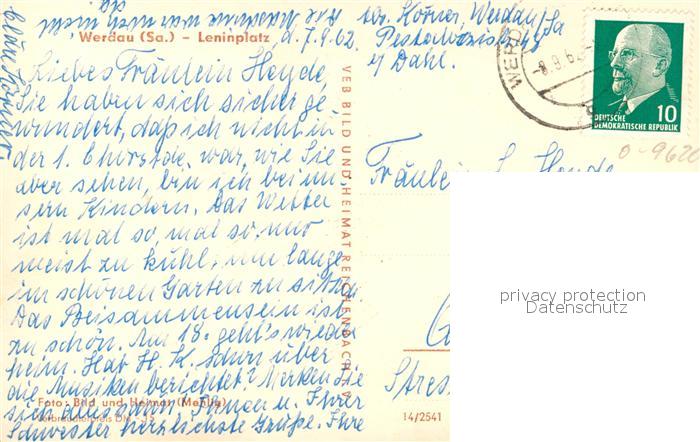 Werdau (Sa.) - Leninplatz
d. 7.9.62.
Liebes Fräulein Heyde,
Sie haben sich sicher ge
wundert, daß ich nicht in
der 1. Chorstde. war, wie Sie
aber sehen, bin ich bei un
sern Kindern. Das Wetter
ist mal so, mal so, nur
meist zu kühl, um lange
im schönen Garten zu sitzen.
Das Beisammensein ist
zu schön. Am 18. geht's wieder
heim. Hat H. K. schon über
die Musiken berichtet? Merken Sie
sich alles dann. Ihnen u. Ihrer
Schwester herzlichste Grüße. Ihre
Foto: Bild und Heimat
Verbraucherpreis DM -,15
VEB BILD UND HEIMAT REICHENBACH I. V.
Körner, Werdau/Sa
Pestalozzistr. 48
b/ Dahl.
WERD
-8.9.62
10
DEUTSCHE
DEMOKRATISCHE REPUBLIK
0-9620
Fräulein L. Heyde
privacy protection
Datenschutz
14/2541